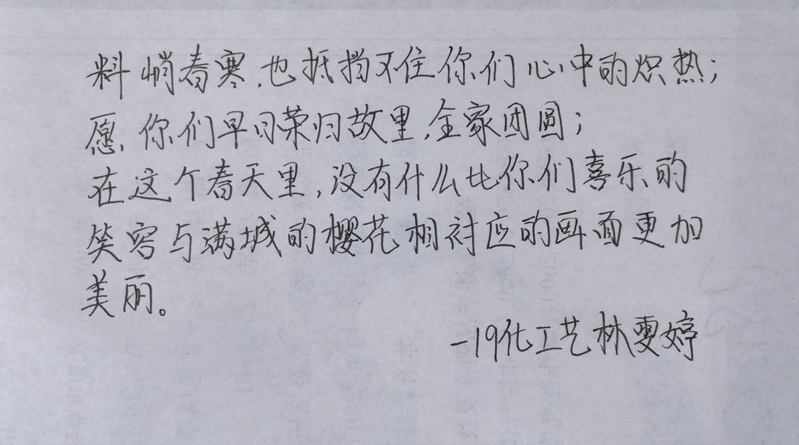 料峭春寒,也抵挡不住你们心中的炽热;
愿,你们早日荣归故里,全家团圆;
在这个春天里,没有什么比你们喜乐的
笑容与满城的樱花相衬应的画面更加
美丽。
-19化工艺林雯婷